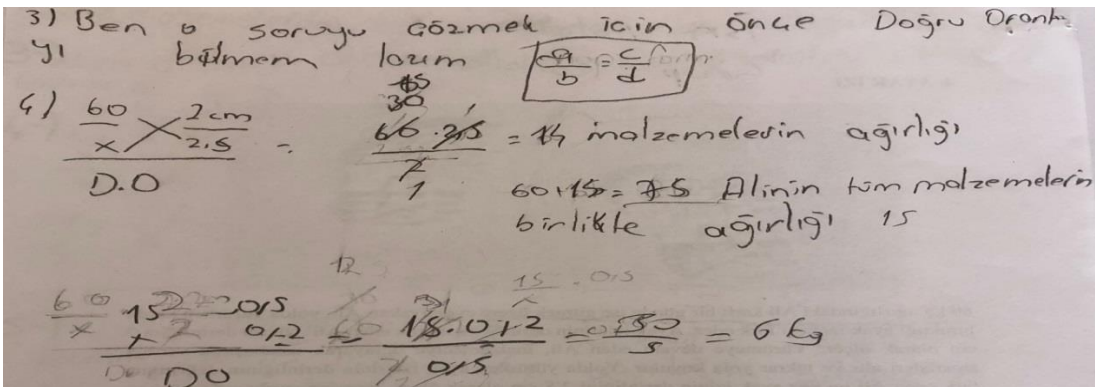 3) Ben o soruyu çözmek için önce Doğru Orantı
yı bilmem lazım a/b = c/d
4) 60/x 2cm/2.5 = 60.2,5/2 = 15 malzemelerin ağırlığı
D.O
60+15= 75 Alinin tüm malzemelerin
birlikte ağırlığı 15
15/x 0,5/0,2 = 15.0,2/0,5 = 30/5 = 6 kg
DO